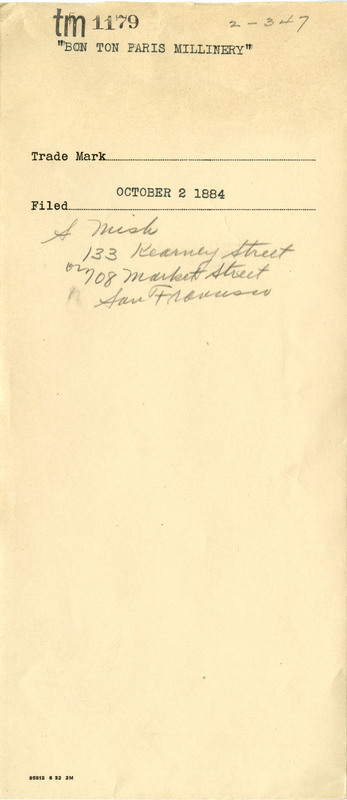 tm 1179
2-347
"BON TON PARIS MILLINERY"
Trade Mark
OCTOBER 2 1884
Filed
S Mish
133 Kearney Street
or 708 Market Street
San Francisco
95912 6 32 2M